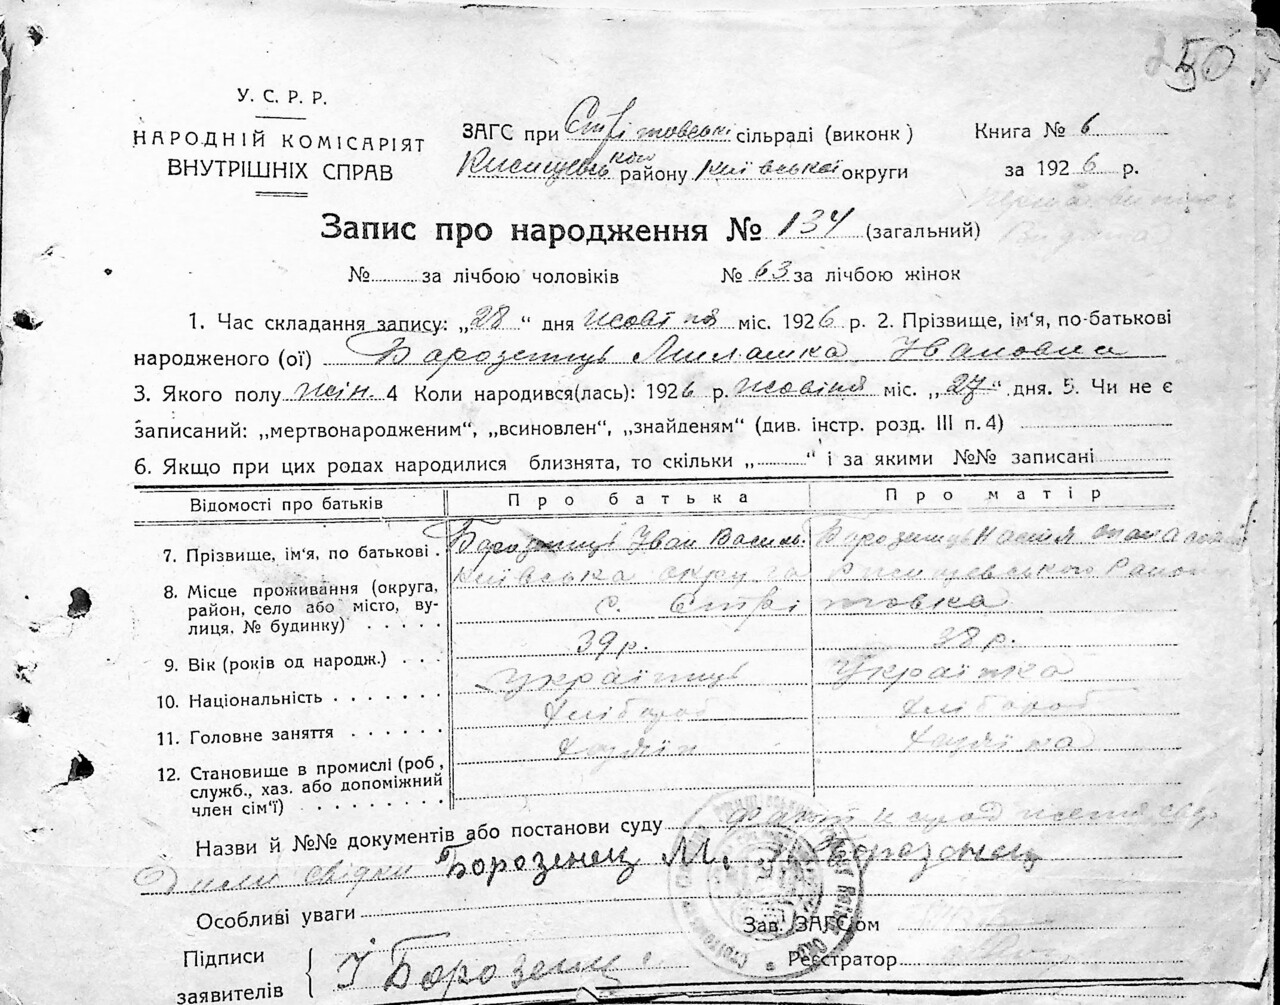 250
У. С. Р. Р.
НАРОДНІЙ КОМІСАРІЯТ
ВНУТРІШНІХ СПРАВ
ЗАГС при Стрітовські сільраді (виконк)
району Київської округи
Книга № 6
за 1926 р.
Запис про народження № 134 (загальний)
№ за лічбою чоловіків № 63 за лічбою жінок
1. Час складання запису: „28“ дня жовтня міс. 1926 р. 2. Прізвище, ім‘я, по-батькові
народженого (ої) Борозенець Ивановна
3. Якого полу жін. 4 Коли народився(лась): 1926 р. жовтня міс. „27“ дня. 5. Чи не є
записаний: „мертвонародженим“, „всиновлен“, „знайденям“ (див. інстр. розд. III п. 4)
6. Якщо при цих родах народилися близнята, то скільки „ “ і за якими №№ записані
Відомості про батьків Про батька Про матір
7. Прізвище, ім‘я, по батькові. Борозенець Іван Василь. Борозенець Настя
8. Місце проживання (округа, Київська округа Району
район, село або місто, ву- с. Стрітовка
лиця, № будинку)
9. Вік (років од народж.) 39 р. 38 р.
10. Національність Українець Українка
11. Головне заняття Хлібороб Хлібороб
12. Становище в промислі (роб, Хазяїн Хазяїна
служб., хаз. або допоміжний
член сім‘ї)
Назви й №№ документів або постанови суду
свідки Борозенец М. Борозенец
Особливі уваги
Зав. ЗАГС‘ом
Підписи
заявителів І Борозенец
Реєстратор